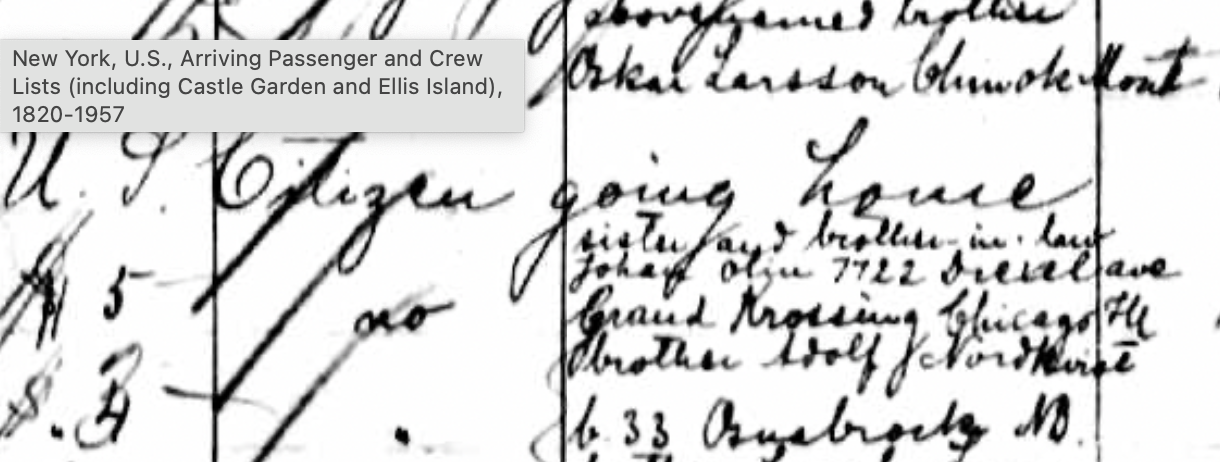 above named brother
Oskar Larsson Chinook Mont
New York, U.S., Arriving Passenger and Crew
Lists (including Castle Garden and Ellis Island),
1820-1957
U. S. Citizen going home
sister and brother-in-law
Johan Olin 7722 Drexel ave
$ 5 no Grand Krossing Chicago Ill
brother Adolf Nordkvist
$. b. 33 Osnabrock ND.